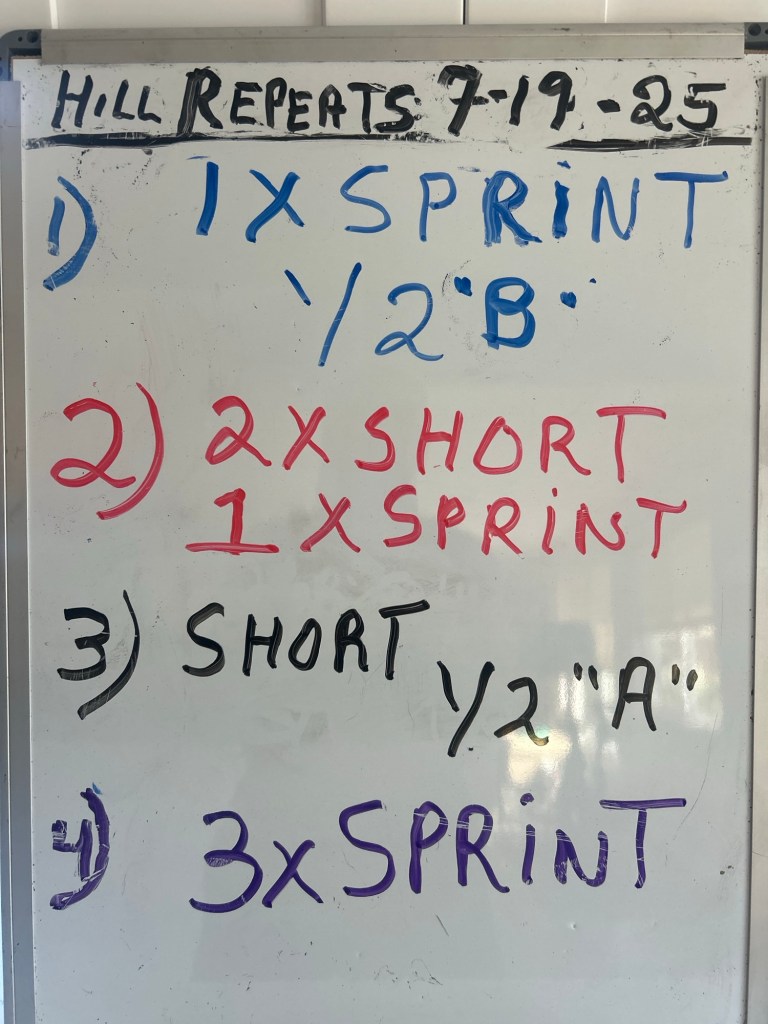 HiLL REPEATS 7-19-25
1) 1X SPRiNT
1/2 "B"
2) 2X SHORT
1 X SPRiNT
3) SHORT
1/2 "A"
4) 3X SPRiNT